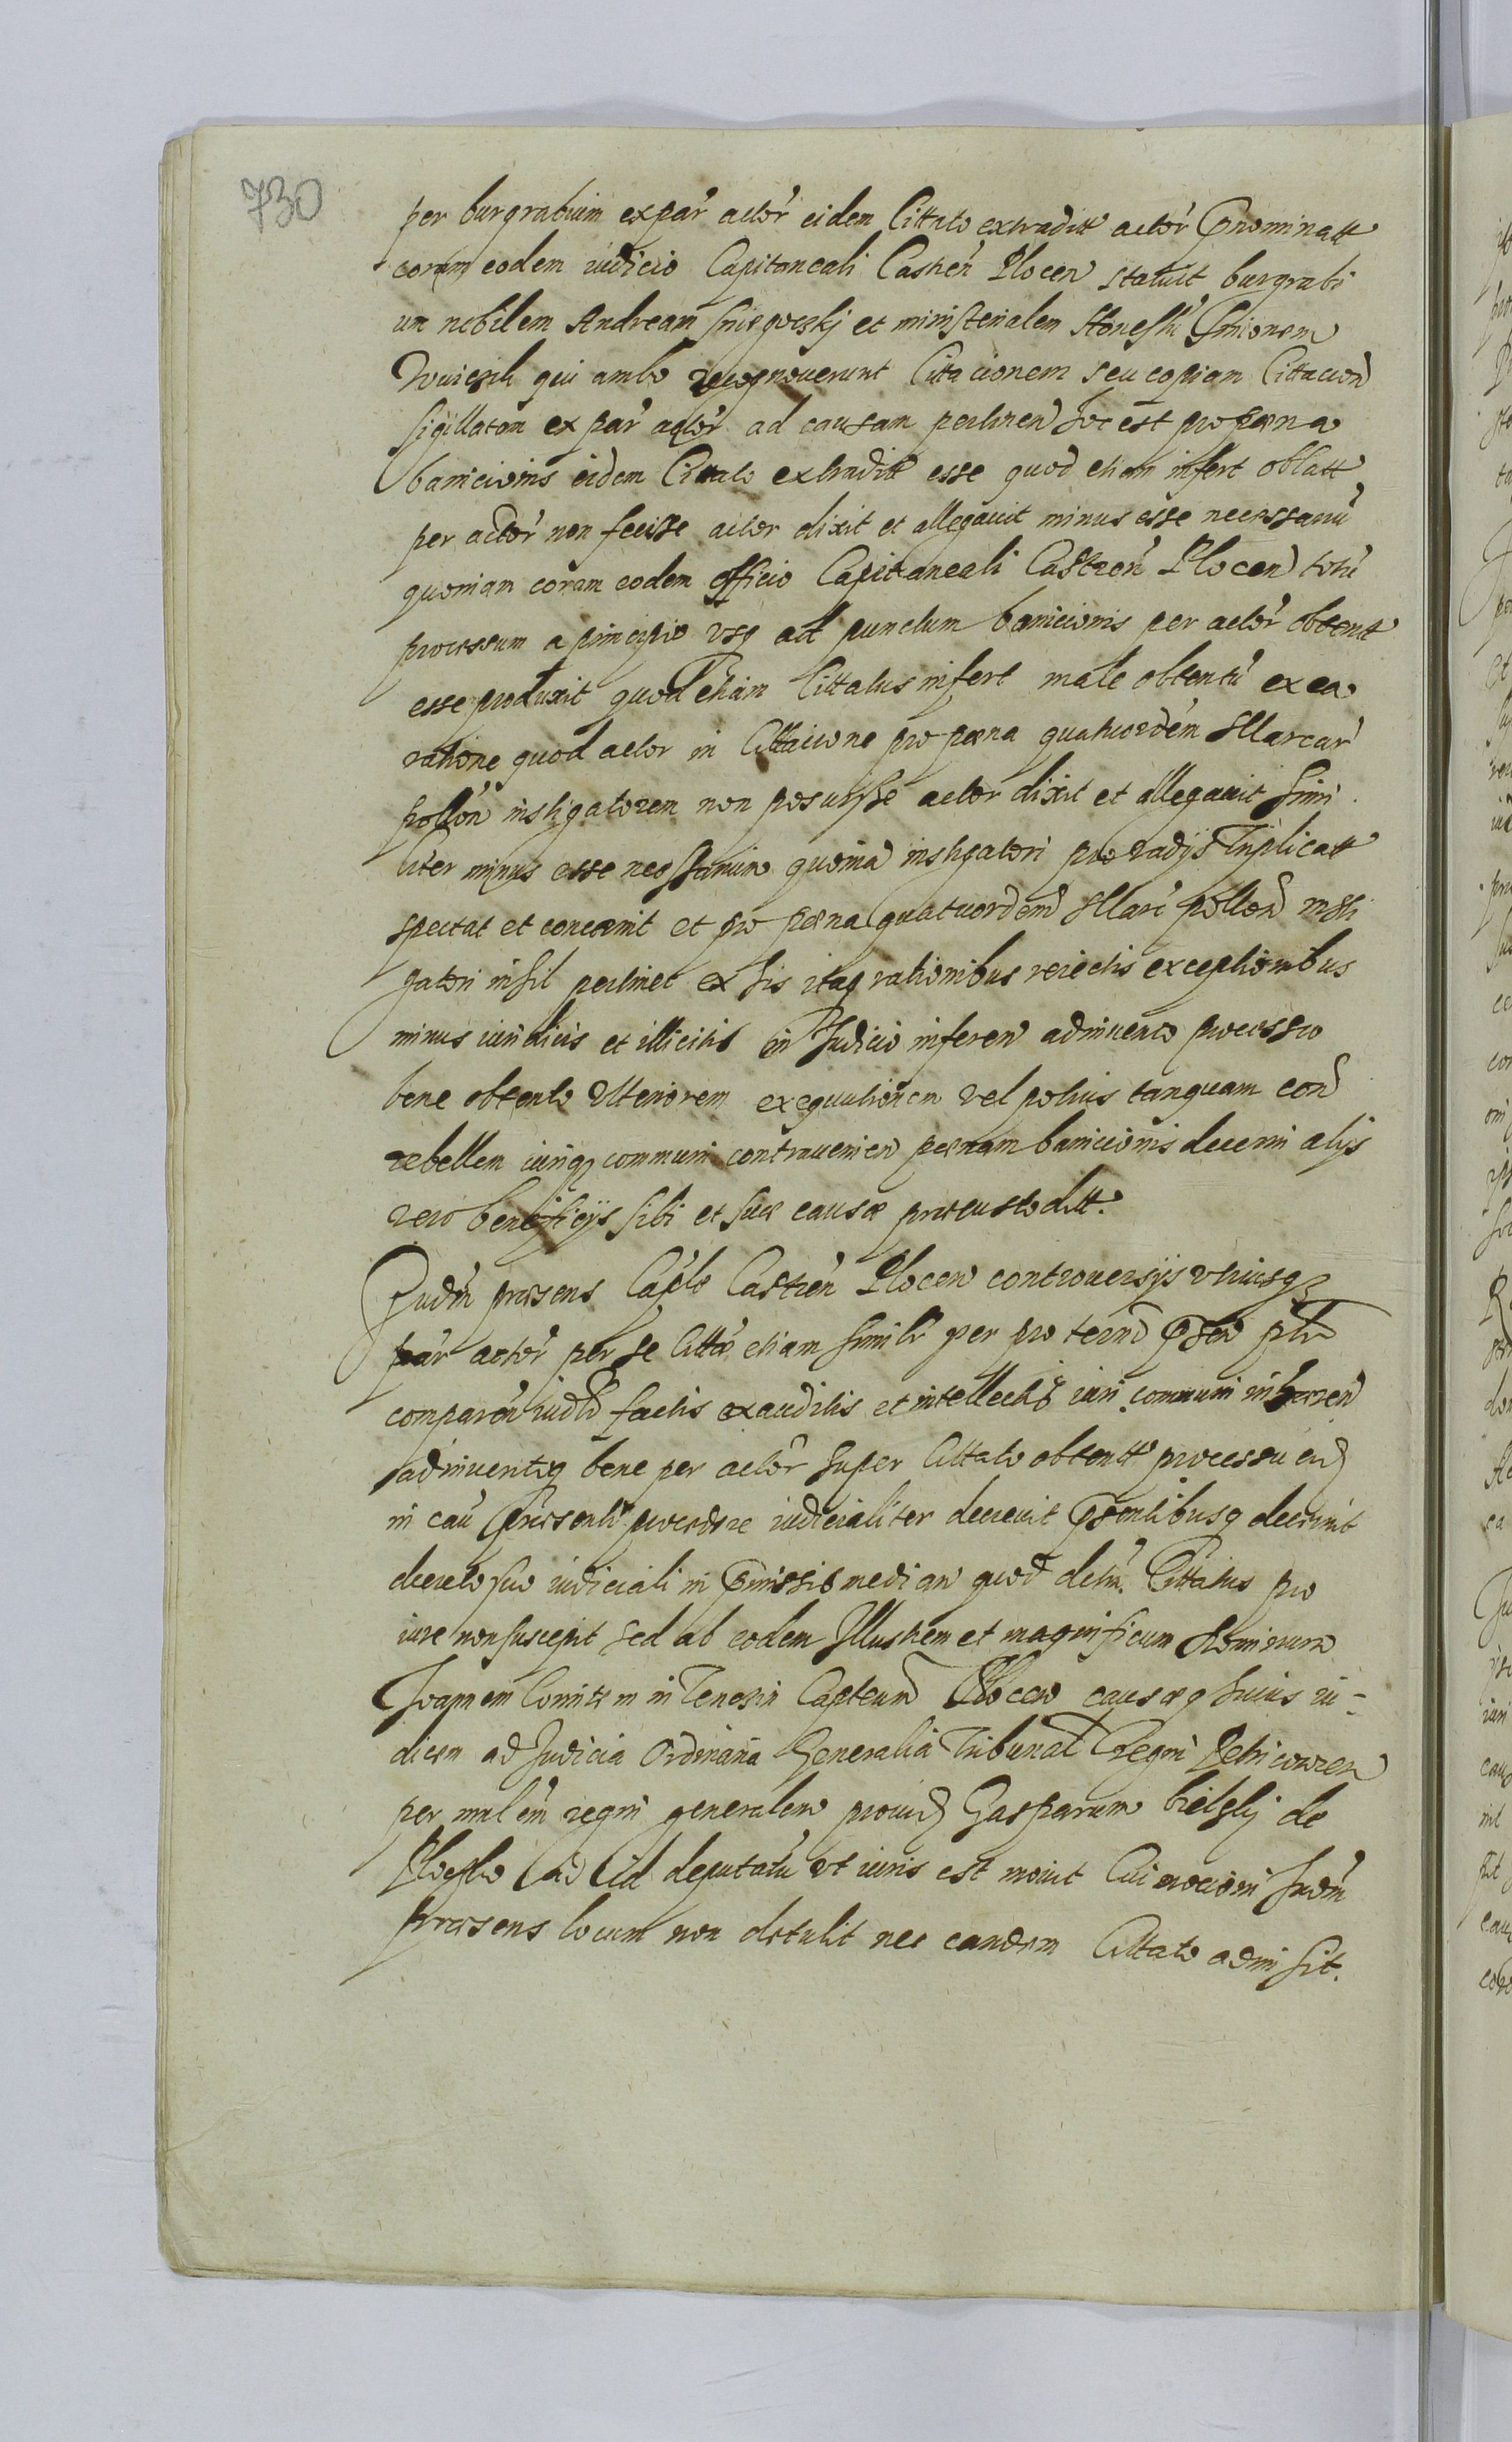 730
per burgrabium ex par actor eidem Cittato extraditt actor pnominatt
coram eodem iudicio Capitaneali Castren Plocen statuit burgrabi
um nobilem Andream et ministerialem Honestu
qui ambo recognoverunt Citacionem seu copiam Cittacion
sigillatam ex par actor ad causam pertinen hoc est pro pæna
banicionis eidem Cittato extraditt esse quod etiam infert oblatt
per actor non fecisse actor dixit et allegauit minus esse necessariu
quoniam coram eodem officio Capitaneali Castren Plocen totu
processum a principio vsq ad punctum banicionis per actor obtent
esse produxit quod etiam Cittatus infert male obtentu ex ea
ratione quod actor in Cittacione pro pæna quatuordem Marcar
pollon instigatorem non posuisse actor dixit et allegauit simi
liter minus esse necessarium quonia instigatori pro vadijs Triplicatt
spectat et concernit et pro pæna quatuordem Marc pollon insti
gatori nihil pertinet ex his itaq rationibus reiectis exceptionibus
minus iuridicis et illicitis in Judicio inferen adinuento processu
bene obtento vlteriorem exequutionem vel potius tanquam con
rebellem iuriq communi contrauenien pænam banicionis decerni alijs
vero beneficijs sibi et suæ causæ præcustoditt.
Judm præsens Caplo Castren Plocen controuersijs vtriusq
par actor per se Citto etiam simili per pro termi
comparen iudlr factis exauditis et intellectis iuri communi inhæren
adinuentoq bene per actor super Cittato obtentt processu eid
in cau præsenti procedere iudicialiter decreuit psentibusq decernit
decreto suo iudiciali in pmissis median quod detm Cittatus pro
iure non suscepit sed ab eodem Illustrem et magnificum Dominum
Joannem Comitem in Tenczin Capteum Plocen causæq huius iu-
dicem ad Judicia Ordinaria Generalia Tribunal Regni Petricouien
per mnlem regni generalem prouid Gasparum bielskj de
Ploczko ad id deputatu vt iuris est mouit Cui mocioni Judm
præsens locum non detulit nec eandem Cittato admisit.